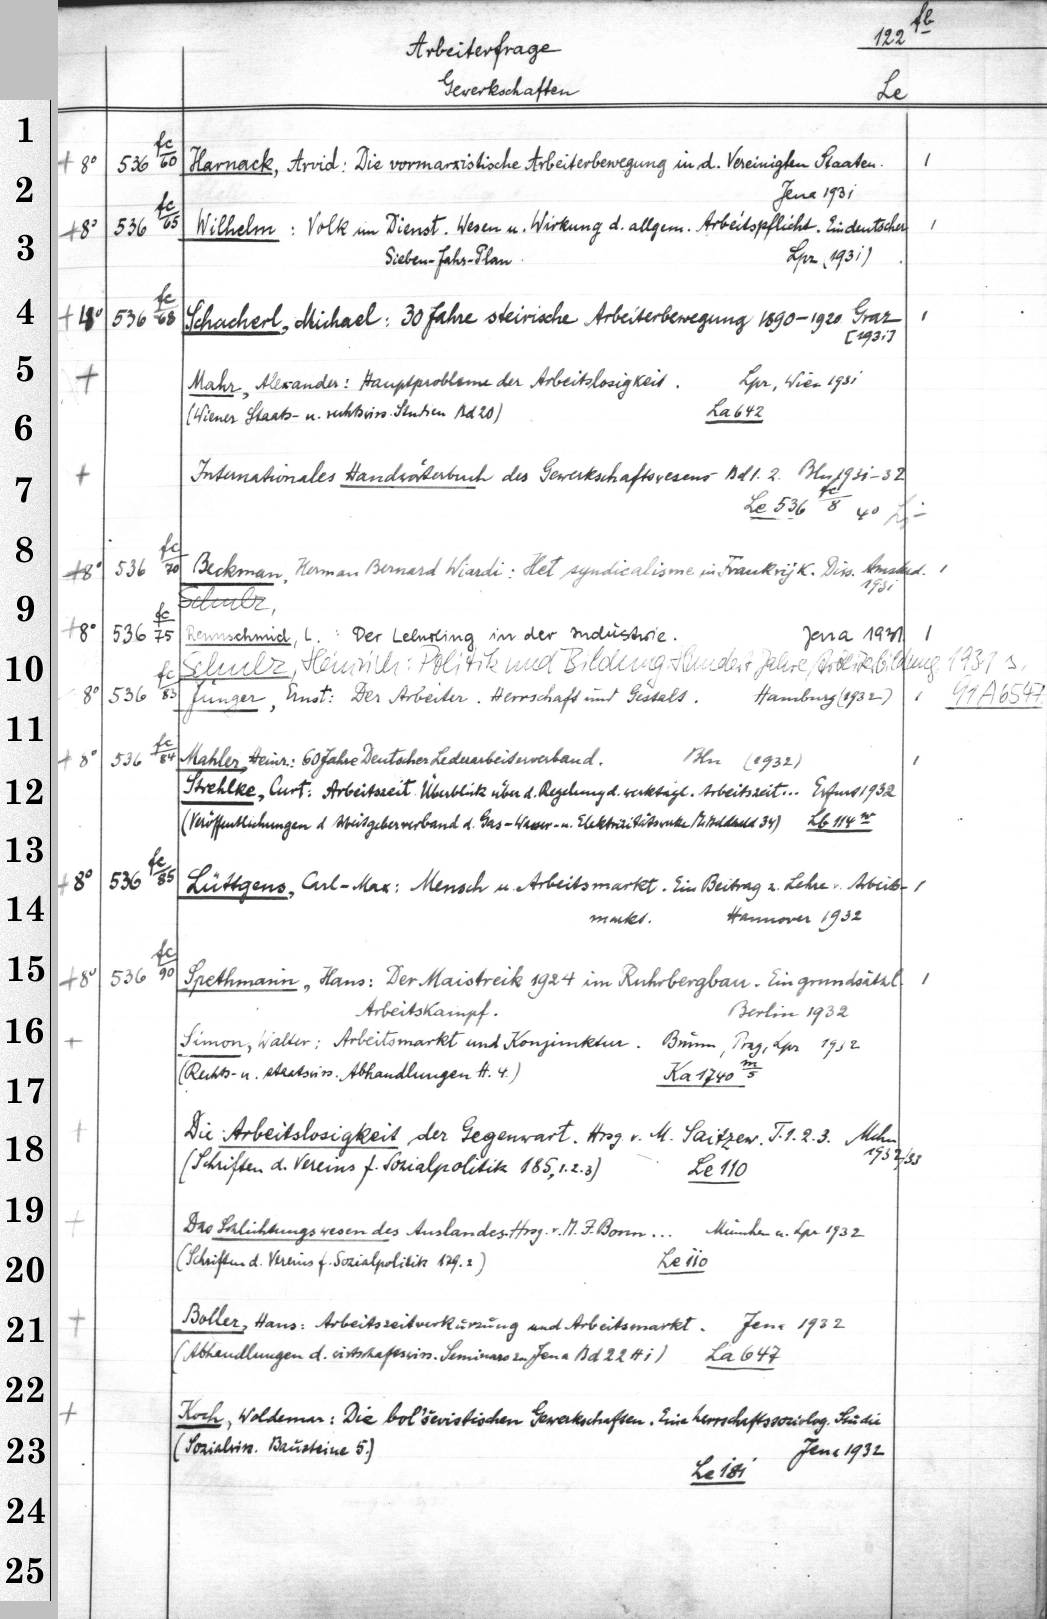 fb
122
Arbeiterfrage
Gewerkschaften
Le
1
+ 8° 536 fc/60 Harnack, Arvid: Die vormarxistische Arbeiterbewegung in d. Vereinigten Staaten. 1
2
Jena 1931
+ 8° 536 fc/65 Wilhelm : Volk im Dienst. Wesen u. Wirkung d. allgem. Arbeitspflicht. Ein deutscher 1
3
Sieben-Jahr-Plan. Lpz (1931)
4
+ 4° 536 fc/68 Schacherl, Michael: 30 Jahre steirische Arbeiterbewegung 1890-1920 Graz 1
[1931]
5
+ Mahr, Alexander: Hauptprobleme der Arbeitslosigkeit. Lpz, Wien 1931
(Wiener Staats- u. rechtswiss. Studien Bd 20) La 642
6
+ Internationales Handwörterbuch des Gewerkschaftswesens Bd 1. 2. Bln 1931-32
7
Le 536 fc/8 4°
8
+ 8° 536 fc/70 Beckman, Herman Bernard Wiardi: Het syndicalisme in Frankrijk. Diss. Amsterd. 1
1931
9
Schulz,
+ 8° 536 fc/75 Rennschmid, L. : Der Lehrling in der Industrie. Jena 1931 1
10
Schulz, Heinrich: Politik und Bildung. Hundert Jahre Arbeiterbildung 1931 s.
8° 536 fc/83 Jünger, Ernst: Der Arbeiter. Herrschaft und Gestalt. Hamburg (1932) 1 G1A6547
11
+ 8° 536 fc/84 Mahler, Heinr.: 60 Jahre Deutscher Lederarbeiterverband. Bln (1932) 1
12
Strehlke, Curt: Arbeitszeit. Überblick über d. Regelung d. werktägl. Arbeitszeit... Erfurt 1932
(Veröffentlichungen d. Arbeitgeberverband d. Gas-Wasser- u. Elektrizitätswerke 34) Lb 114 w
13
+ 8° 536 fc/85 Lüttgens, Carl-Max: Mensch u. Arbeitsmarkt. Ein Beitrag z. Lehre v. Arbeits- 1
14
markt. Hannover 1932
15
+ 8° 536 fc/90 Spethmann, Hans: Der Maistreik 1924 im Ruhrbergbau. Ein grundsätzl. 1
Arbeitskampf. Berlin 1932
16
+ Simon, Walter: Arbeitsmarkt und Konjunktur. Brünn, Prag, Lpz 1932
(Rechts- u. staatswiss. Abhandlungen H. 4.) Ka 1740 m/5
17
+ Die Arbeitslosigkeit der Gegenwart. Hrsg. v. M. Saitzew. T. 1. 2. 3. Mchn
1932/33
18
(Schriften d. Vereins f. Sozialpolitik 185, 1. 2. 3) Le 110
19
+ Das Schlichtungswesen des Auslandes. Hrsg. v. M. J. Bonn ... München u. Lpz 1932
(Schriften d. Vereins f. Sozialpolitik 179. 2) Le 110
20
21
+ Boller, Hans: Arbeitszeitverkürzung und Arbeitsmarkt. Jena 1932
(Abhandlungen d. wirtschaftswiss. Seminars zu Jena Bd 22 H 1) La 647
22
+ Koch, Woldemar: Die bol'ševistischen Gewerkschaften. Eine herrschaftssoziolog. Studie
23
(Sozialwiss. Bausteine 5.) Jena 1932
Le 181
24
25